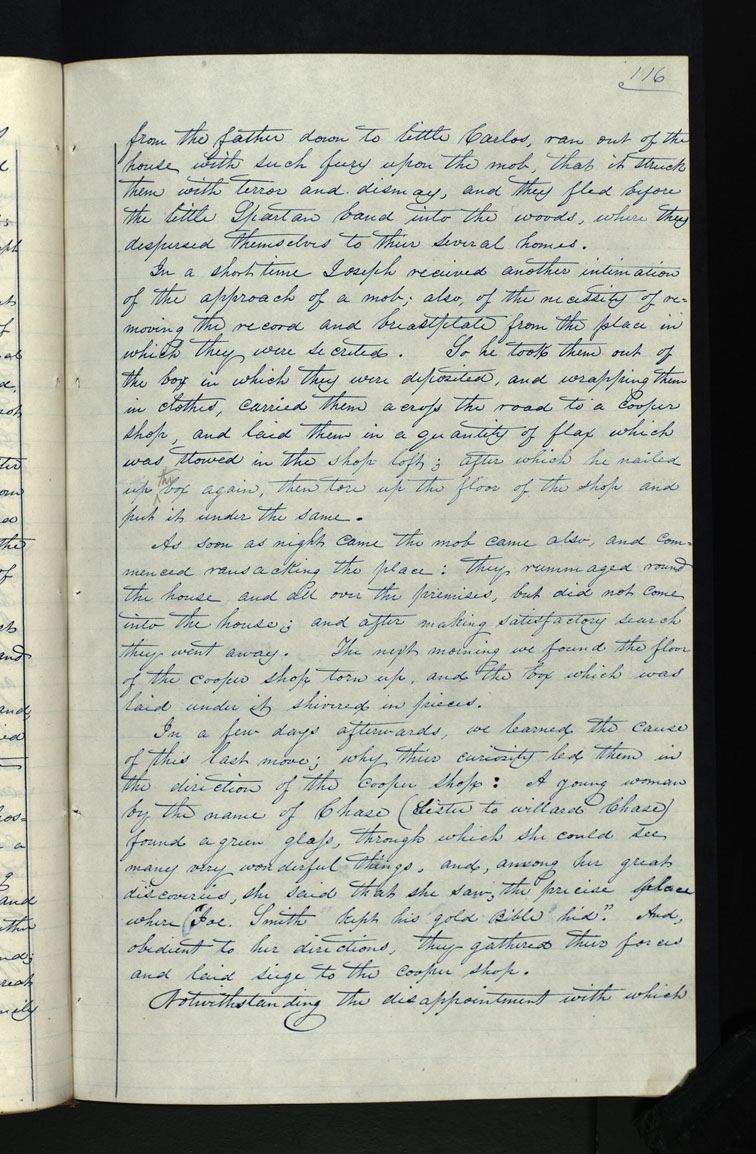 116
from the father down to little Carlos, ran out of the
house with such fury upon the mob, that it struck
them with terror and dismay, and they fled before
the little Spartan band into the woods, where they
dispersed themselves to their several homes.
In a short time Joseph received another intimation
of the approach of a mob; also, of the necessity of re-
moving the record and breastplate from the place in
which they were secreted. So he took them out of
the box in which they were deposited, and wrapping them
in clothes, carried them across the road to a Cooper
shop, and laid them in a quantity of flax which
was stowed in the shop loft; after which he nailed
up the box again, then tore up the floor of the shop and
put it under the same.
As soon as night came the mob came also, and com-
menced ransacking the place: they rummaged round
the house, and all over the premises, but did not come
into the house; and after making satisfactory search
they went away. The next morning we found the floor
of the cooper shop torn up, and the box which was
laid under it shivered in pieces.
In a few days afterwards, we learned the cause
of this last move; why their curiosity led them in
the direction of the cooper shop: A young woman
by the name of Chase (Sister to willard Chase)
found a green glass, through which she could see
many very wonderful things, and, among her great
discoveries, she said that she saw, the precise place
where "Joe. Smith kept his gold bible hid". And,
obedient to her directions, they gathered their forces
and laid siege to the cooper shop.
Notwithstanding the disappointment with which